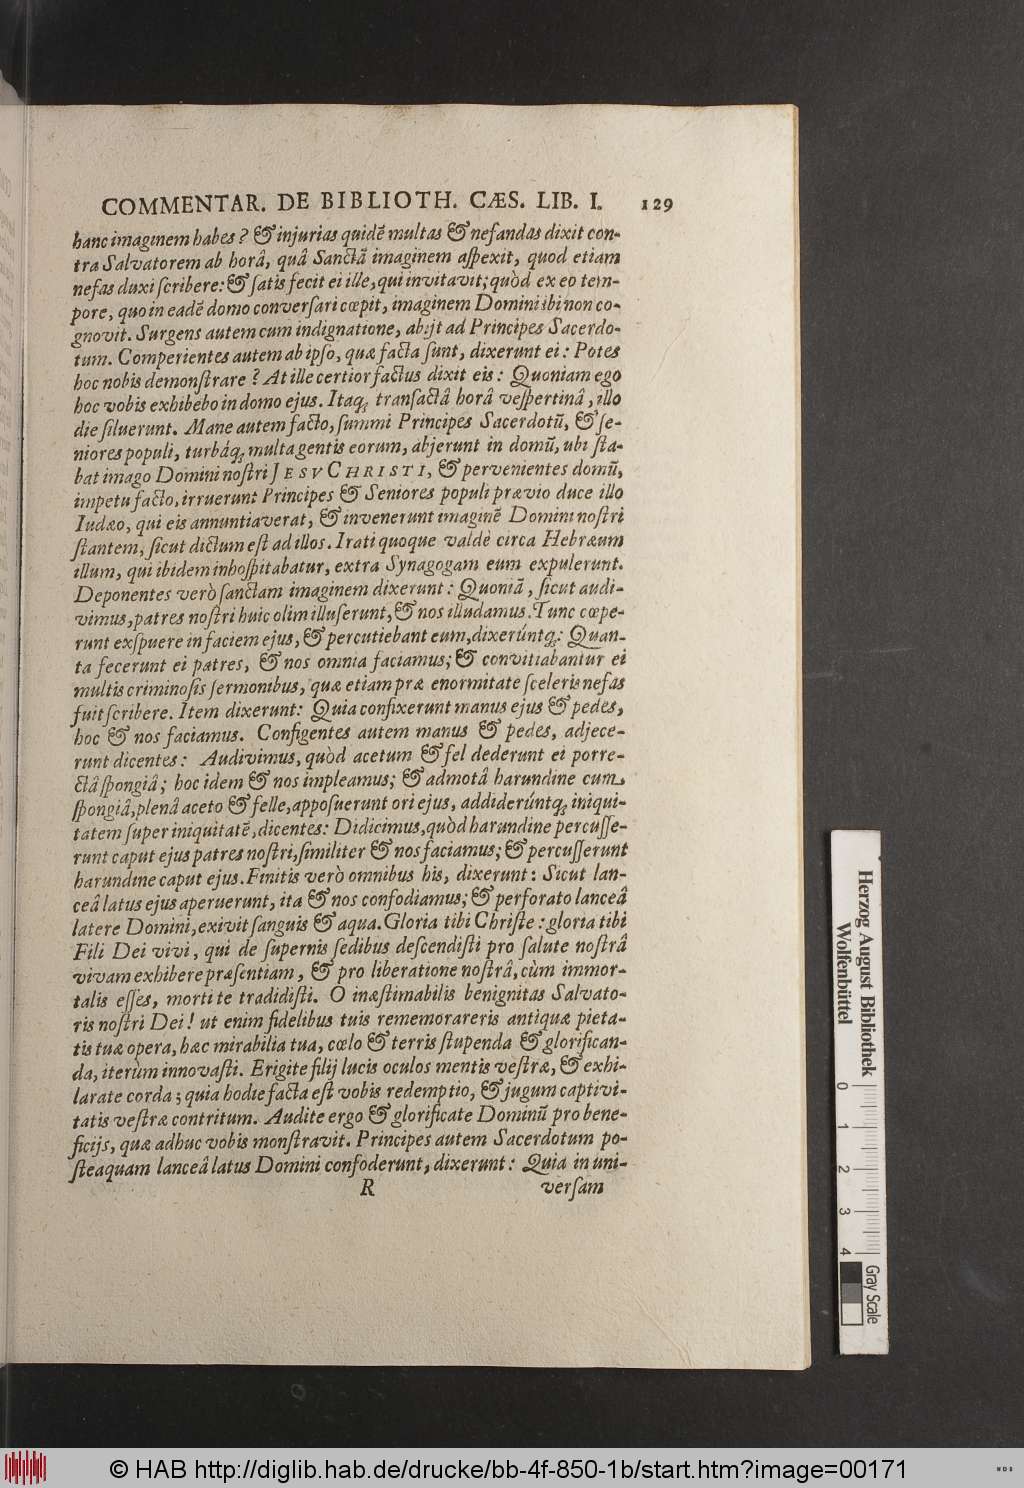 COMMENTAR. DE BIBLIOTH. CÆS. LIB. I. 129
hanc imaginem habes? & injurias quidē multas & nefandas dixit con-
tra Salvatorem ab horâ, quâ Sanctã imaginem aspexit, quod etiam
nefas duxi scribere: & satis fecit ei ille, qui invitavit; quòd ex eo tem-
pore, quo in eadē domo conversari cœpit, imaginem Domini ibi non co-
gnovit. Surgens autem cum indignatione, abijt ad Principes Sacerdo-
tum. Comperientes autem ab ipso, quæ facta sunt, dixerunt ei: Potes
hoc nobis demonstrare? At ille certior factus dixit eis: Quoniam ego
hoc vobis exhibebo in domo ejus. Itaq; transactâ horâ vespertinâ, illo
die siluerunt. Mane autem facto, summi Principes Sacerdotũ, & se-
niores populi, turbáq; multa gentis eorum, abjerunt in domũ, ubi sta-
bat imago Domini nostri JESV CHRISTI, & pervenientes domũ,
impetu facto, irruerunt Principes & Seniores populi prævio duce illo
Iudæo, qui eis annuntiaverat, & invenerunt imaginē Domini nostri
stantem, sicut dictum est ad illos. Irati quoque valdè circa Hebræum
illum, qui ibidem inhospitabatur, extra Synagogam eum expulerunt.
Deponentes verò sanctam imaginem dixerunt: Quoniã, sicut audi-
vimus, patres nostri huic olim illuserunt, & nos illudamus. Tunc cœpe-
runt exspuere in faciem ejus, & percutiebant eum, dixerúntq;: Quan-
ta fecerunt ei patres, & nos omnia faciamus; & convitiabantur ei
multis criminosis sermonibus, quæ etiam præ enormitate sceleris nefas
fuit scribere. Item dixerunt: Quia confixerunt manus ejus & pedes,
hoc & nos faciamus. Configentes autem manus & pedes, adjece-
runt dicentes: Audivimus, quòd acetum & fel dederunt ei porre-
ctâ spongiâ; hoc idem & nos impleamus; & admotâ harundine cum
spongiâ, plenâ aceto & felle, apposuerunt ori ejus, addiderúntq; iniqui-
tatem super iniquitatē, dicentes: Didicimus, quòd harundine percusse-
runt caput ejus patres nostri, similiter & nos faciamus; & percusserunt
harundine caput ejus. Finitis verò omnibus his, dixerunt: Sicut lan-
ceâ latus ejus aperuerunt, ita & nos confodiamus; & perforato lanceâ
latere Domini, exivit sanguis & aqua. Gloria tibi Christe: gloria tibi
Fili Dei vivi, qui de supernis sedibus descendisti pro salute nostrâ
vivam exhibere præsentiam, & pro liberatione nostrâ, cùm immor-
talis esses, morti te tradidisti. O inæstimabilis benignitas Salvato-
ris nostri Dei! ut enim fidelibus tuis rememorareris antiquæ pieta-
tis tuæ opera, hæc mirabilia tua, cœlo & terris stupenda & glorifican-
da, iterùm innovasti. Erigite filij lucis oculos mentis vestræ, & exhi-
larate corda; quia hodie facta est vobis redemptio, & jugum captivi-
tatis vestræ contritum. Audite ergo & glorificate Dominũ pro bene-
ficijs, quæ adhuc vobis monstravit. Principes autem Sacerdotum po-
steaquam lanceâ latus Domini confoderunt, dixerunt: Quia in uni-
R versam
Herzog August Bibliothek
Wolfenbüttel
0 1 2 3 4
Gray Scale
© HAB http://diglib.hab.de/drucke/bb-4f-850-1b/start.htm?image=00171